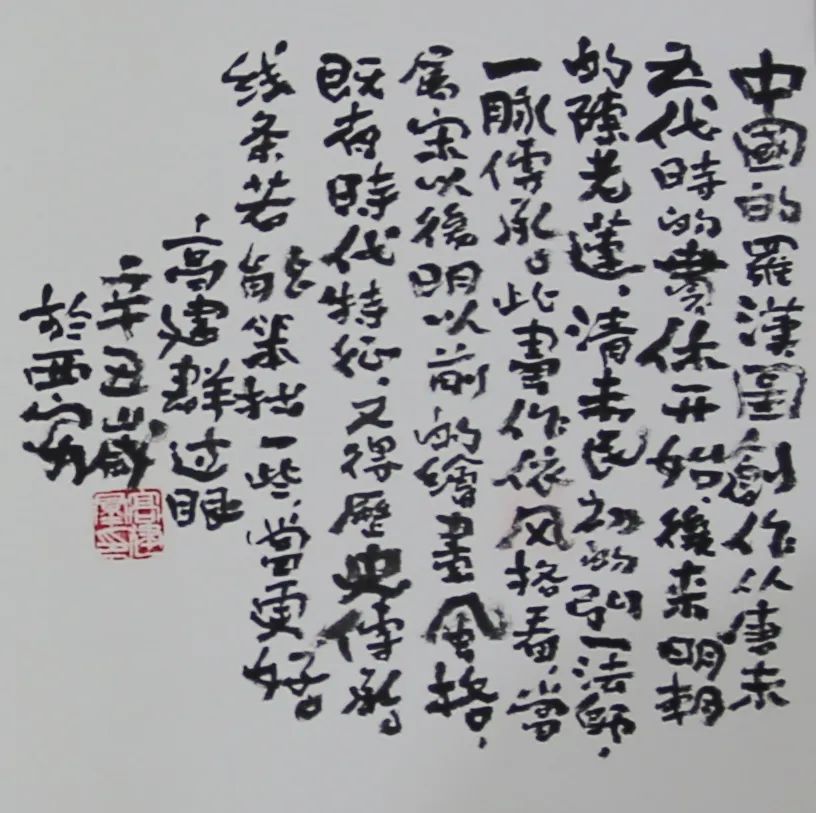 中國的羅漢圖創作从唐末
五代時的貫休开始,後来明朝
的陳老蓮,清末民初的弘一法師,
一脉傳承。此畫作依风格看,當
属宋以後明以前的繪畫風格,
既有時代特征,又得歷史傳承。
线条若能拙一些,當更好。
高建群过眼
辛丑歲
於西安
高建群印